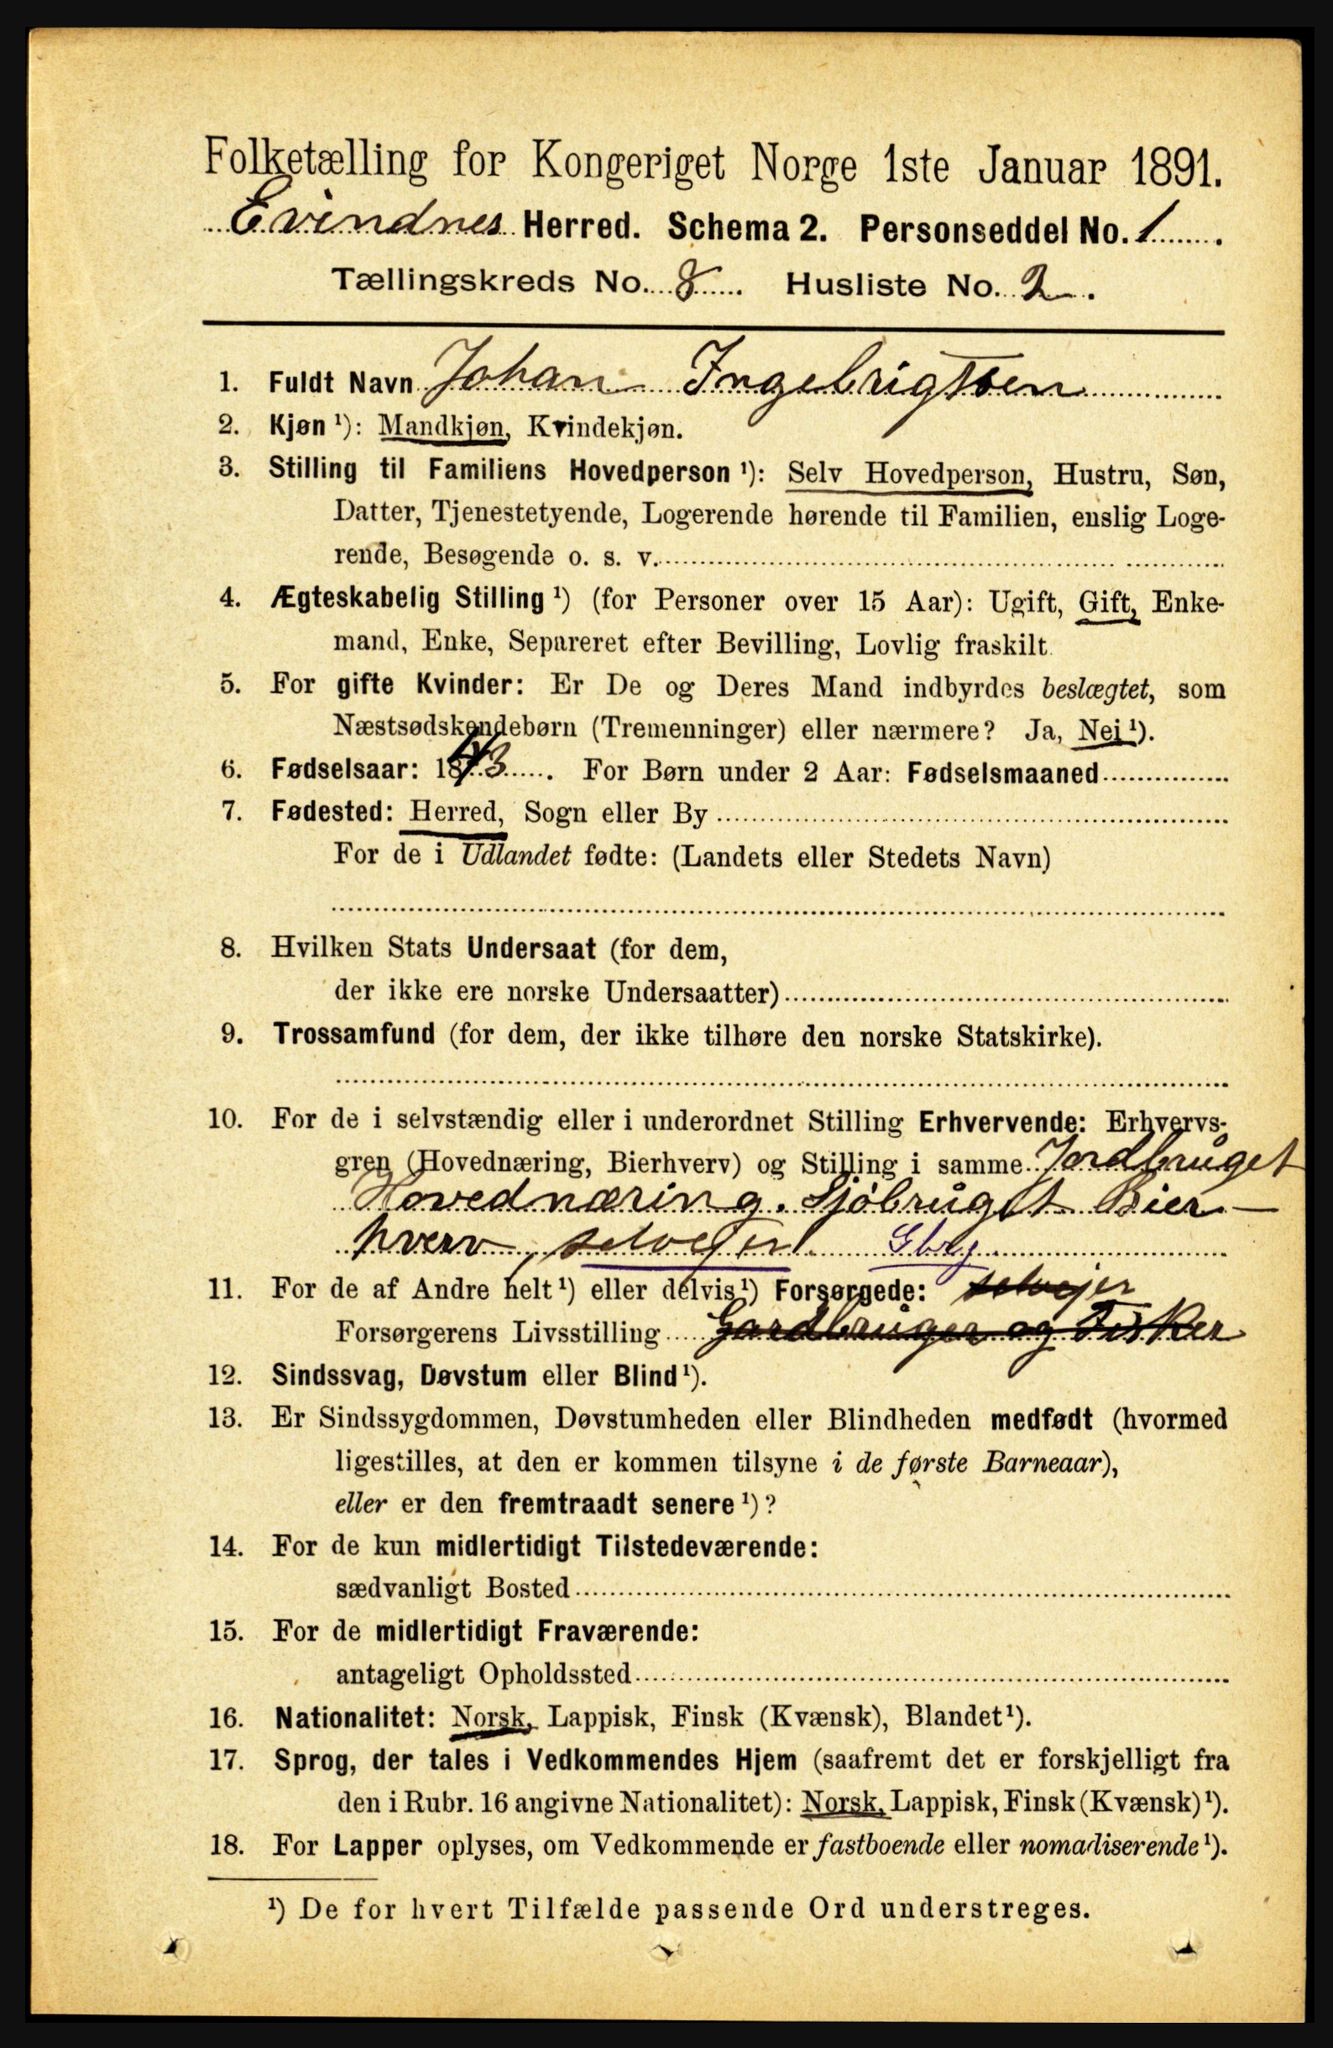 Folketælling for Kongeriget Norge 1ste Januar 1891.
Evindnes Herred. Schema 2. Personseddel No. 1.
Tællingskreds No. 8. Husliste No. 2.
1. Fuldt Navn Johan Ingebrigtsen
2. Kjøn ¹): Mandkjøn, Kvindekjøn.
3. Stilling til Familiens Hovedperson ¹): Selv Hovedperson, Hustru, Søn,
Datter, Tjenestetyende, Logerende hørende til Familien, enslig Loge-
rende, Besøgende o. s. v.
4. Ægteskabelig Stilling ¹) (for Personer over 15 Aar): Ugift, Gift, Enke-
mand, Enke, Separeret efter Bevilling, Lovlig fraskilt.
5. For gifte Kvinder: Er De og Deres Mand indbyrdes beslægtet, som
Næstsødskendebørn (Tremenninger) eller nærmere? Ja, Nei ¹).
6. Fødselsaar: 1843. For Børn under 2 Aar: Fødselsmaaned
7. Fødested: Herred, Sogn eller By
For de i Udlandet fødte: (Landets eller Stedets Navn)
8. Hvilken Stats Undersaat (for dem,
der ikke ere norske Undersaatter)
9. Trossamfund (for dem, der ikke tilhøre den norske Statskirke).
10. For de i selvstændig eller i underordnet Stilling Erhvervende: Erhvervs-
gren (Hovednæring, Bierhverv) og Stilling i samme Jordbruget
Hovednæring. Sjöbruget Bier-
hverv, selvejer Gbrg
11. For de af Andre helt ¹) eller delvis ¹) Forsørgede: selvejer
Forsørgerens Livsstilling Gardbruger og Fisker
12. Sindssvag, Døvstum eller Blind ¹).
13. Er Sindssygdommen, Døvstumheden eller Blindheden medfødt (hvormed
ligestilles, at den er kommen tilsyne i de første Barneaar),
eller er den fremtraadt senere ¹)?
14. For de kun midlertidigt Tilstedeværende:
sædvanligt Bosted
15. For de midlertidigt Fraværende:
antageligt Opholdssted
16. Nationalitet: Norsk, Lappisk, Finsk (Kvænsk), Blandet ¹).
17. Sprog, der tales i Vedkommendes Hjem (saafremt det er forskjelligt fra
den i Rubr. 16 angivne Nationalitet): Norsk, Lappisk, Finsk (Kvænsk) ¹).
18. For Lapper oplyses, om Vedkommende er fastboende eller nomadiserende ¹).
¹) De for hvert Tilfælde passende Ord understreges.